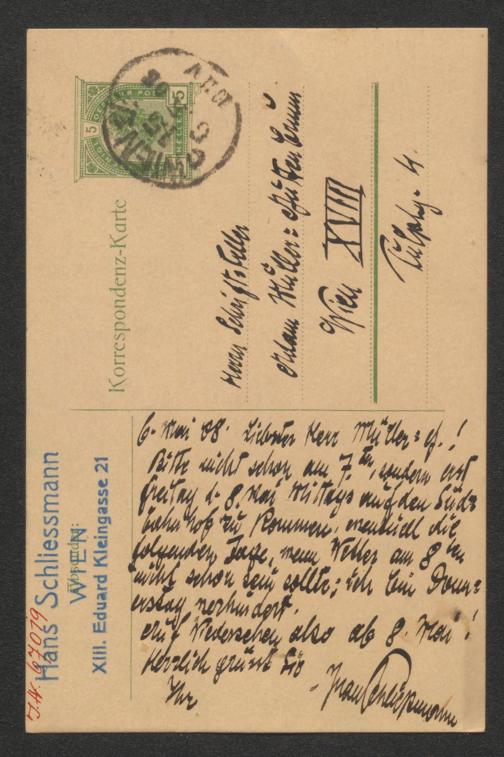 Korrespondenz-Karte
5 5
WIEN
Herrn Schriftsteller
Adam Müller=Guttenbrunn
Wien XVIII
4.
J.N. 67019
Hans Schliessmann
WIEN
XIII. Eduard Kleingasse 21
6. Mai 08. Liebster Herr Müller=G.!
Bitte nicht schon am 7ten, sondern erst
Freitag d. 8. Mai Mittags auf den Süd=
bahnhof zu kommen, eventuell die
folgenden Tage, wenn Wetter am 8ten
nicht schon sein sollte; ich bin Donn=
erstag verhindert.
Auf Wiedersehen also ab 8. Mai!
Herzlich grüßt Sie
Ihr
Hans Schließmann